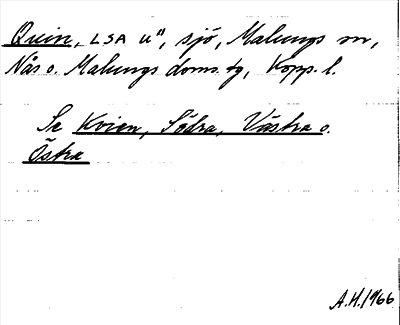 Quin, LSA U", sjö, Malungs sn,
Nås o. Malungs doms. tg, Kopp. l.
Se Kvien, Södra, Västra o.
Östra
A.H. 1966